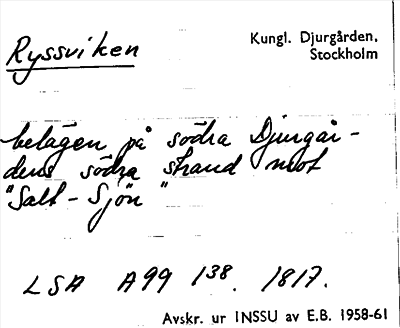 Ryssviken
Kungl. Djurgården,
Stockholm
belägen på södra Djurgår-
dens södra strand mot
"Salt-Sjön"
LSA A99 138. 1817.
Avskr. ur INSSU av E.B. 1958-61